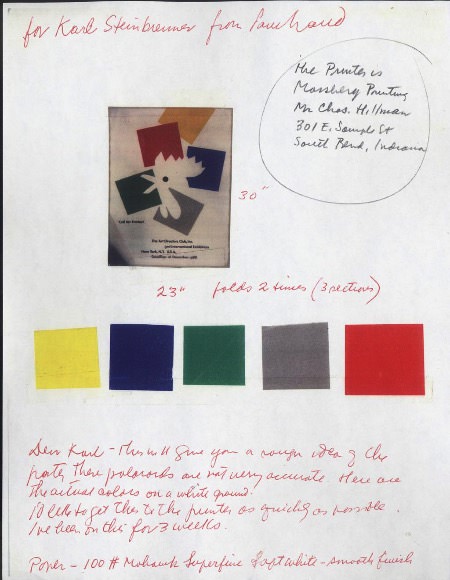 for Karl Steinbrenner from Paul Rand
The Printer is
Mossberg Printing
Mr Chas. Hillman
301 E. Sample St
South Bend, Indiana
30"
Call for Entries!
The Art Directors Club, Inc.
International Exhibition
New York, N.Y. U.S.A.
Deadline: 18 November 1988
23" folds 2 times (3 sections)
Dear Karl - This will give you a rough idea of the
poster. These polaroids are not very accurate. Here are
the actual colors on a white ground.
I'd like to get this to the printer as quickly as possible.
I've been on this for 3 weeks.
Paper - 100 # Mohawk Superfine Softwhite - smooth finish